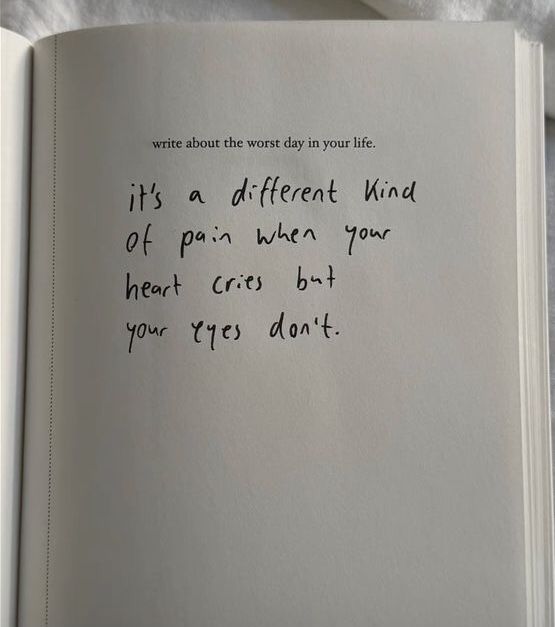 write about the worst day in your life.
it's a different kind
of pain when your
heart cries but
your eyes don't.